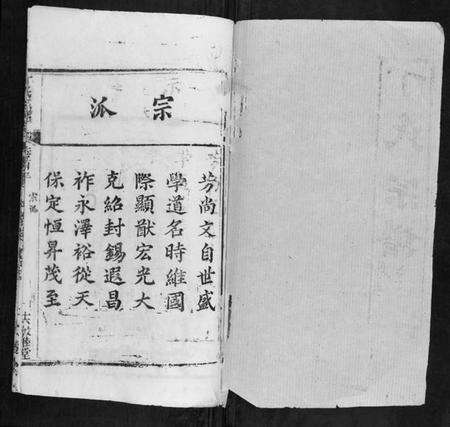 宗派
芳尚文自世盛
學道名時維國
際顯猷宏光大
克紹封錫遐昌
祚永澤裕從天
保定恒昇茂至
宗派